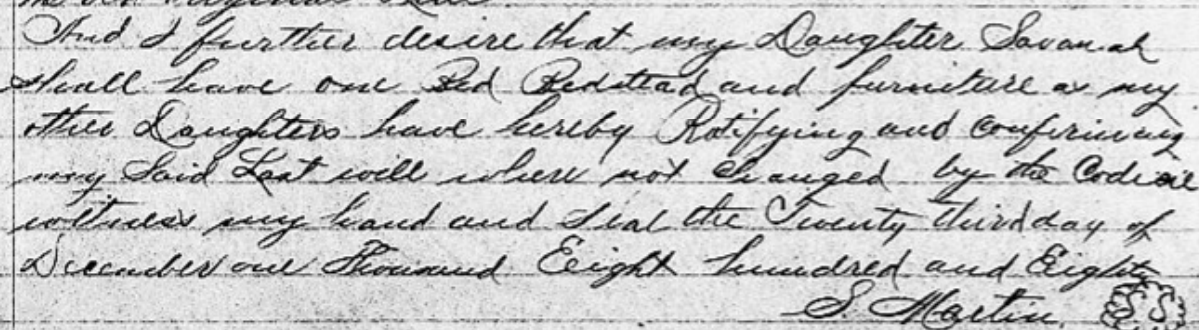 And I further desire that my Daughter Savanah
shall have one Bed Bedstead and furniture as my
other Daughters have hereby Ratifying and confirming
my Said Last will where not changed by the Codicil
witness my hand and Seal the Twenty third day of
December one Thousand Eeight hundred and Eighty
S. Martin